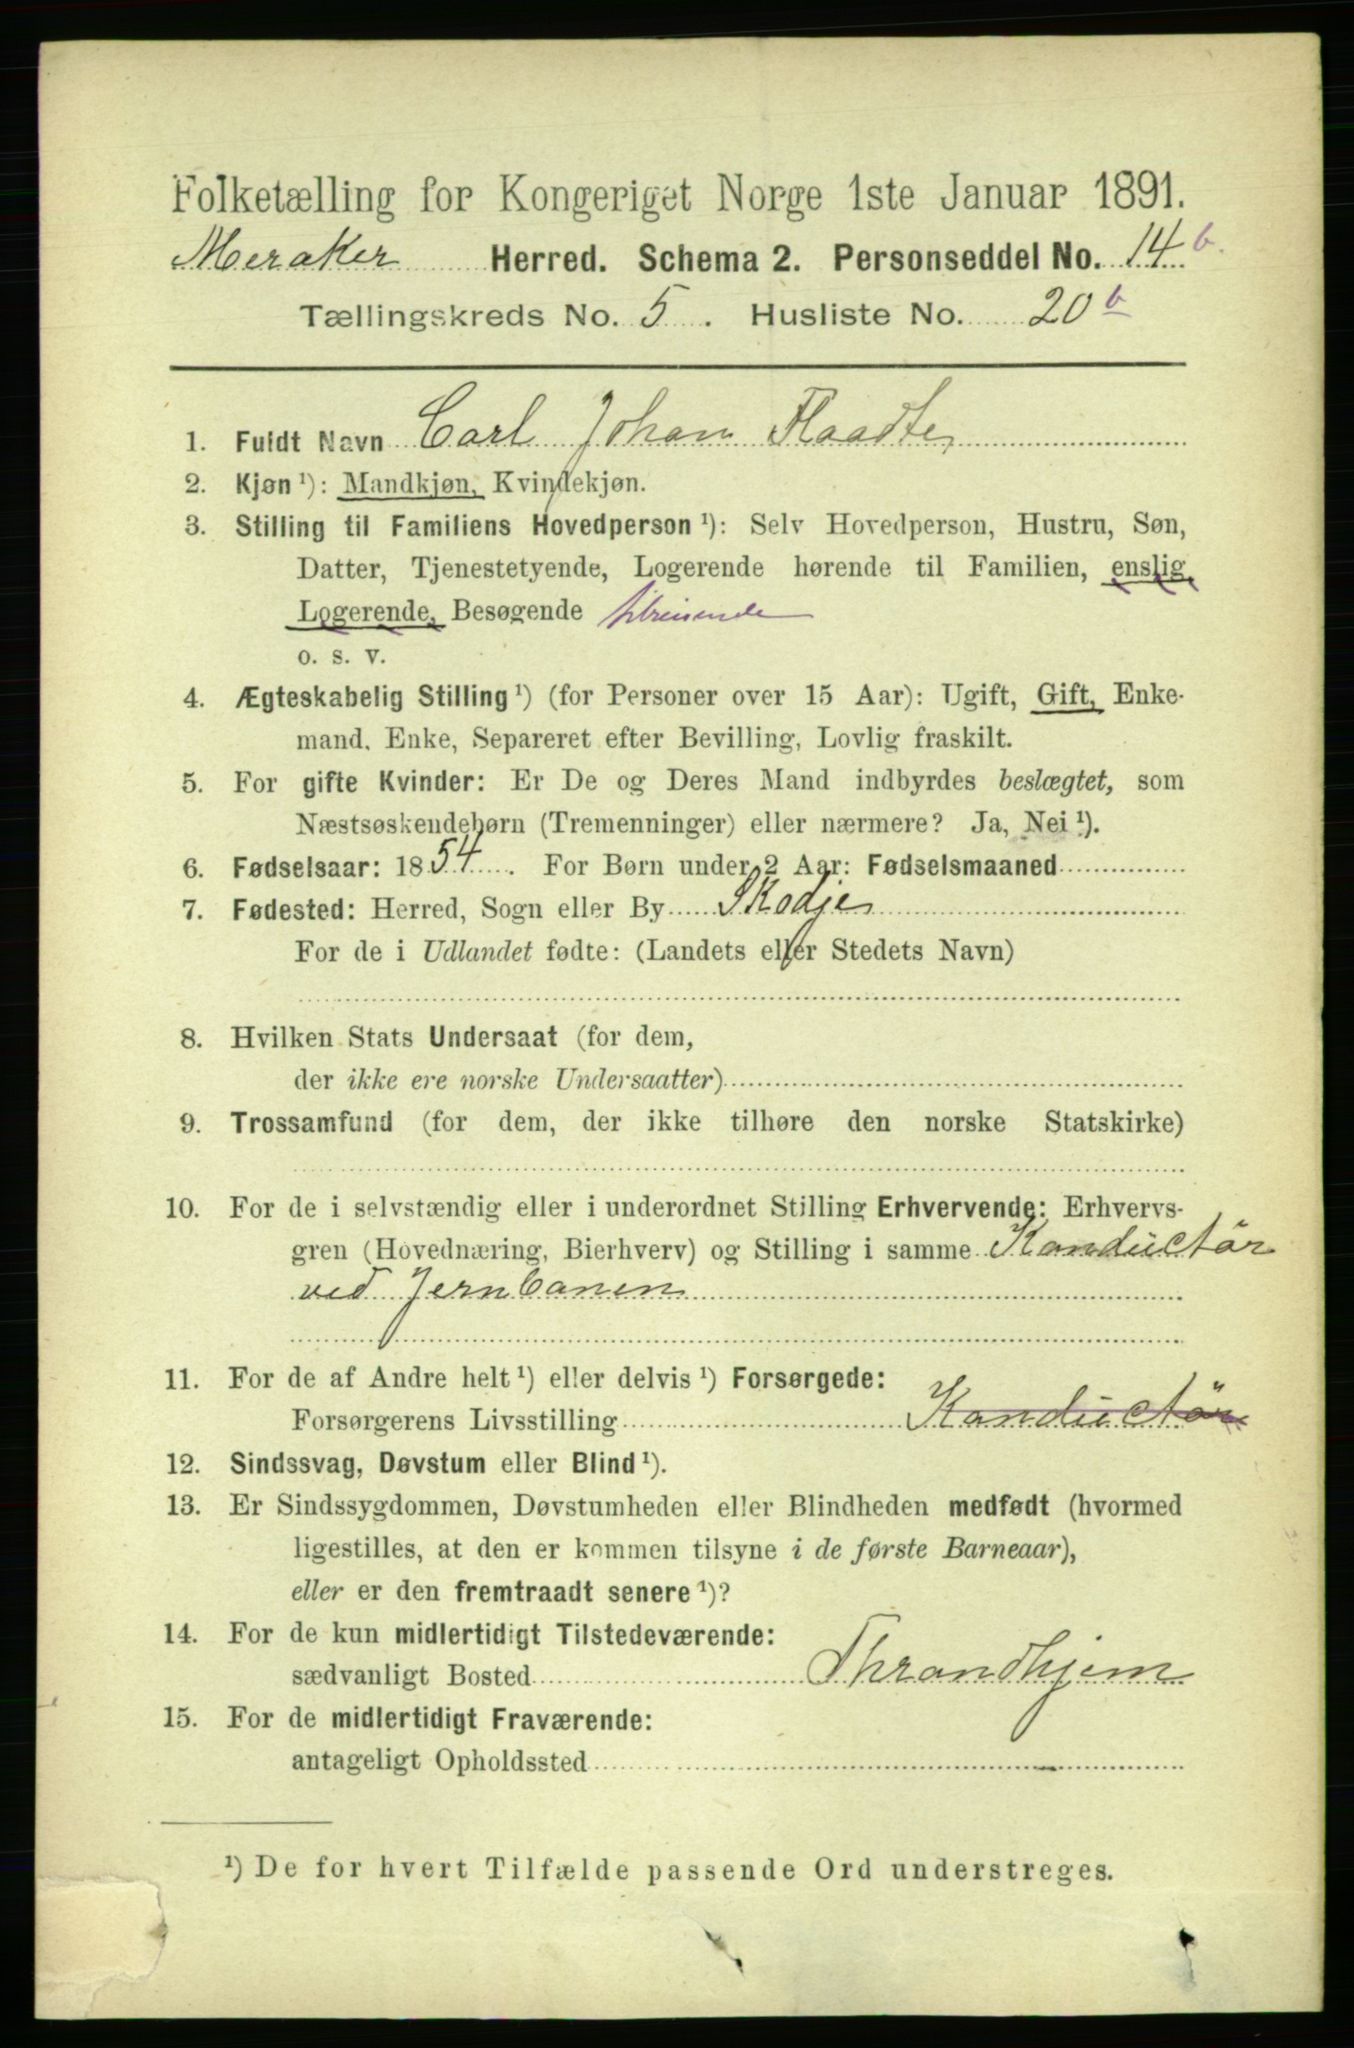 Folketælling for Kongeriget Norge 1ste Januar 1891.
Meraker Herred. Schema 2. Personseddel No. 14 b.
Tællingskreds No. 5. Husliste No. 20 b
1. Fuldt Navn Carl Johan Flaadte
2. Kjøn ¹): Mandkjøn, Kvindekjøn.
3. Stilling til Familiens Hovedperson ¹): Selv Hovedperson, Hustru, Søn,
Datter, Tjenestetyende, Logerende hørende til Familien, enslig
Logerende, Besøgende tilreisende
o. s. v.
4. Ægteskabelig Stilling ¹) (for Personer over 15 Aar): Ugift, Gift, Enke-
mand, Enke, Separeret efter Bevilling, Lovlig fraskilt.
5. For gifte Kvinder: Er De og Deres Mand indbyrdes beslægtet, som
Næstsøskendebørn (Tremenninger) eller nærmere? Ja, Nei ¹).
6. Fødselsaar: 1854. For Børn under 2 Aar: Fødselsmaaned
7. Fødested: Herred, Sogn eller By Skodje
For de i Udlandet fødte: (Landets eller Stedets Navn)
8. Hvilken Stats Undersaat (for dem,
der ikke ere norske Undersaatter)
9. Trossamfund (for dem, der ikke tilhøre den norske Statskirke)
10. For de i selvstændig eller i underordnet Stilling Erhvervende: Erhvervs-
gren (Hovednæring, Bierhverv) og Stilling i samme Konductör
ved Jernbanen
11. For de af Andre helt ¹) eller delvis ¹) Forsørgede:
Forsørgerens Livsstilling Konductör
12. Sindssvag, Døvstum eller Blind ¹).
13. Er Sindssygdommen, Døvstumheden eller Blindheden medfødt (hvormed
ligestilles, at den er kommen tilsyne i de første Barneaar),
eller er den fremtraadt senere ¹)?
14. For de kun midlertidigt Tilstedeværende:
sædvanligt Bosted Throndhjem
15. For de midlertidigt Fraværende:
antageligt Opholdssted
¹) De for hvert Tilfælde passende Ord understreges.